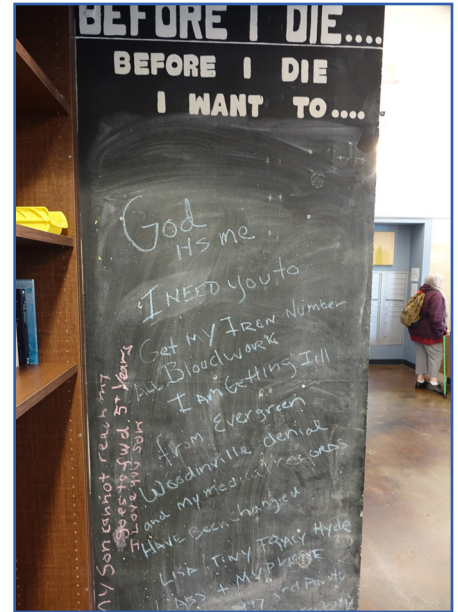 BEFORE I DIE....
BEFORE I DIE
I WANT TO....
God
its me
I NEED you to
Get MY IRON Number
ALL Bloodwork
I AM GETTING Ill
from Evergreen
Woodinville denial
and my medical records
HAVE BEEN changed
LISA TINY Hyde
LABS + MY
my Son cannot reach my
goes to fwd 5+ years
I Love you son